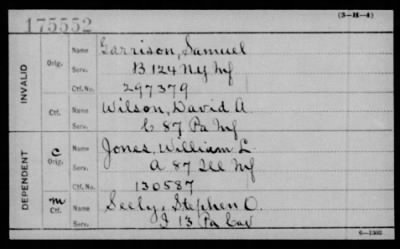 175552
(3-H-4)
INVALID
Orig.
Name Garrison, Samuel
Serv. B 124 NY Inf
Ctf. No. 297379
Ctf.
Name Wilson, David A.
Serv. C 87 Pa Inf
DEPENDENT
C
Orig.
Name Jones, William L.
Serv. A 87 Ill Inf
Ctf. No. 130587
m
Ctf.
Name Seely, Stephen O.
Serv. I 13 Pa Cav